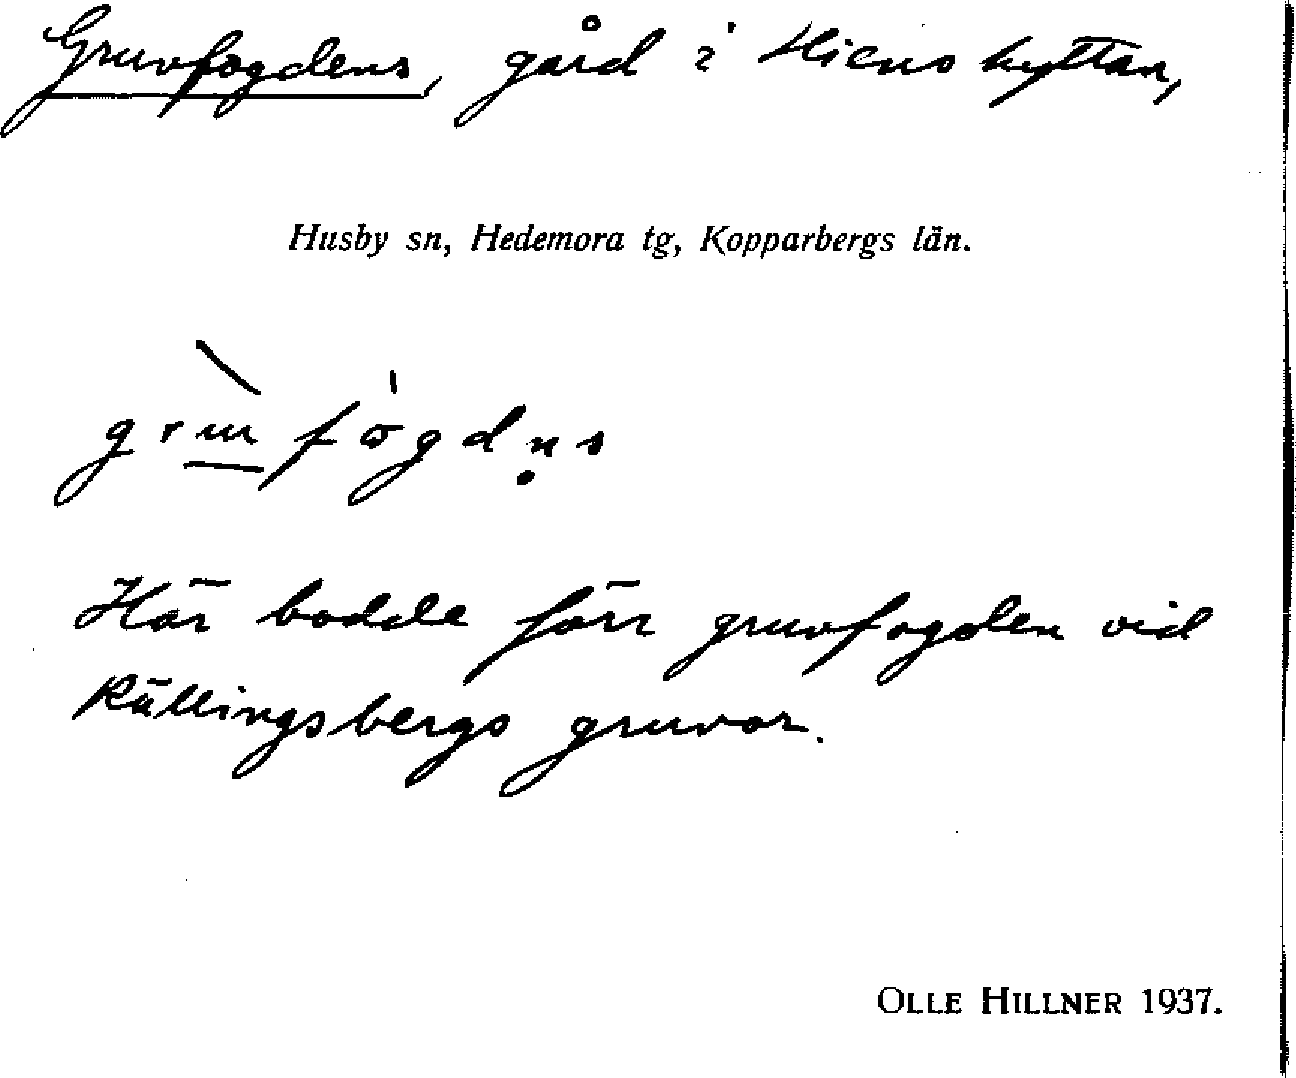 Gruvfogdens, gård i Stienshyttan,
Husby sn, Hedemora tg, Kopparbergs län.
Här bodde förr gruvfogden vid
Rällingsbergs gruvor.
OLLE HILLNER 1937.